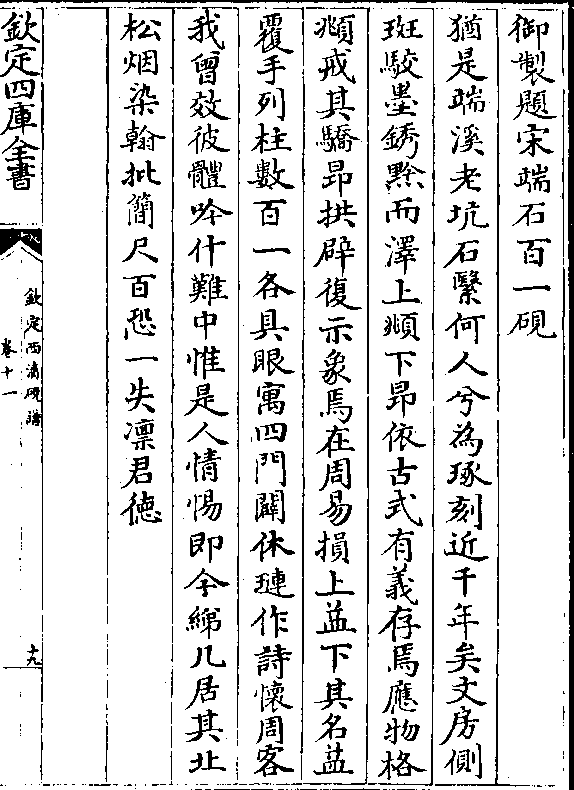 御製題宋端石百一硯
猶是端溪老坑石繄何人兮為琢刻近千年矣文房側
斑駮墨銹黝而澤上頫下昂依古式有義存焉應物格
頫戒其驕昂拱辟復示象焉在周易損上益下其名益
覆手列柱數百一各具眼寓四門闢休璉作詩懷周客
我曾效彼體吟什難中惟是人情惕即今綈几居其北
松烟染翰批簡尺百恐一失凛君徳
欽定四庫全書
欽定西清硯譜
卷十一
十九